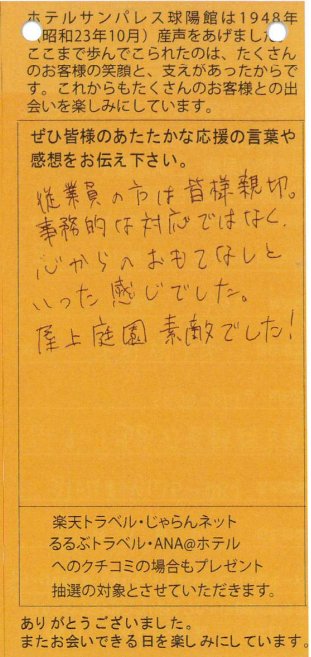 ホテルサンパレス球陽館は1948年
昭和23年10月）産声をあげまし
ここまで歩んでこられたのは、たくさん
のお客様の笑顔と、支えがあったからで
す。これからもたくさんのお客様との出
会いを楽しみにしています。
ぜひ皆様のあたたかな応援の言葉や
感想をお伝え下さい。
従業員の方は皆様親切。
事務的な対応ではなく、
心からのおもてなしと
いった感じでした。
屋上庭園素敵でした!
楽天トラベル・じゃらんネット
るるぶトラベル・ANA@ホテル
へのクチコミの場合もプレゼント
抽選の対象とさせていただきます。
ありがとうございました。
またお会いできる日を楽しみにしています。